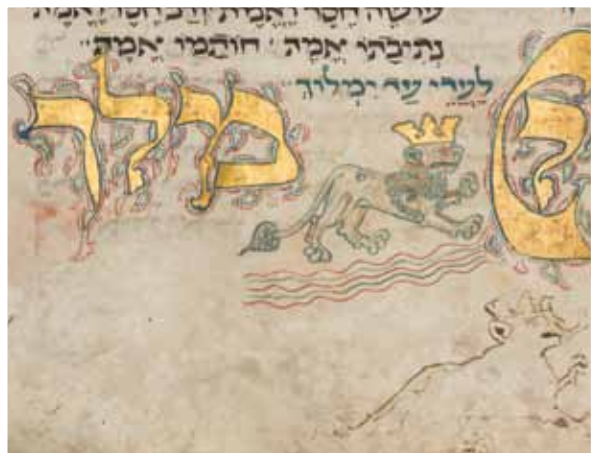 עוֹשֶׂה חֶסֶד וֶאֱמֶת וְרַב חֶסֶד וֶאֱמֶת
נְתִיבָתוֹ אֱמֶת : חוֹתָמוֹ אֱמֶת··
לַעֲדֵי עַד יִמְלוֹךְ··
מלך